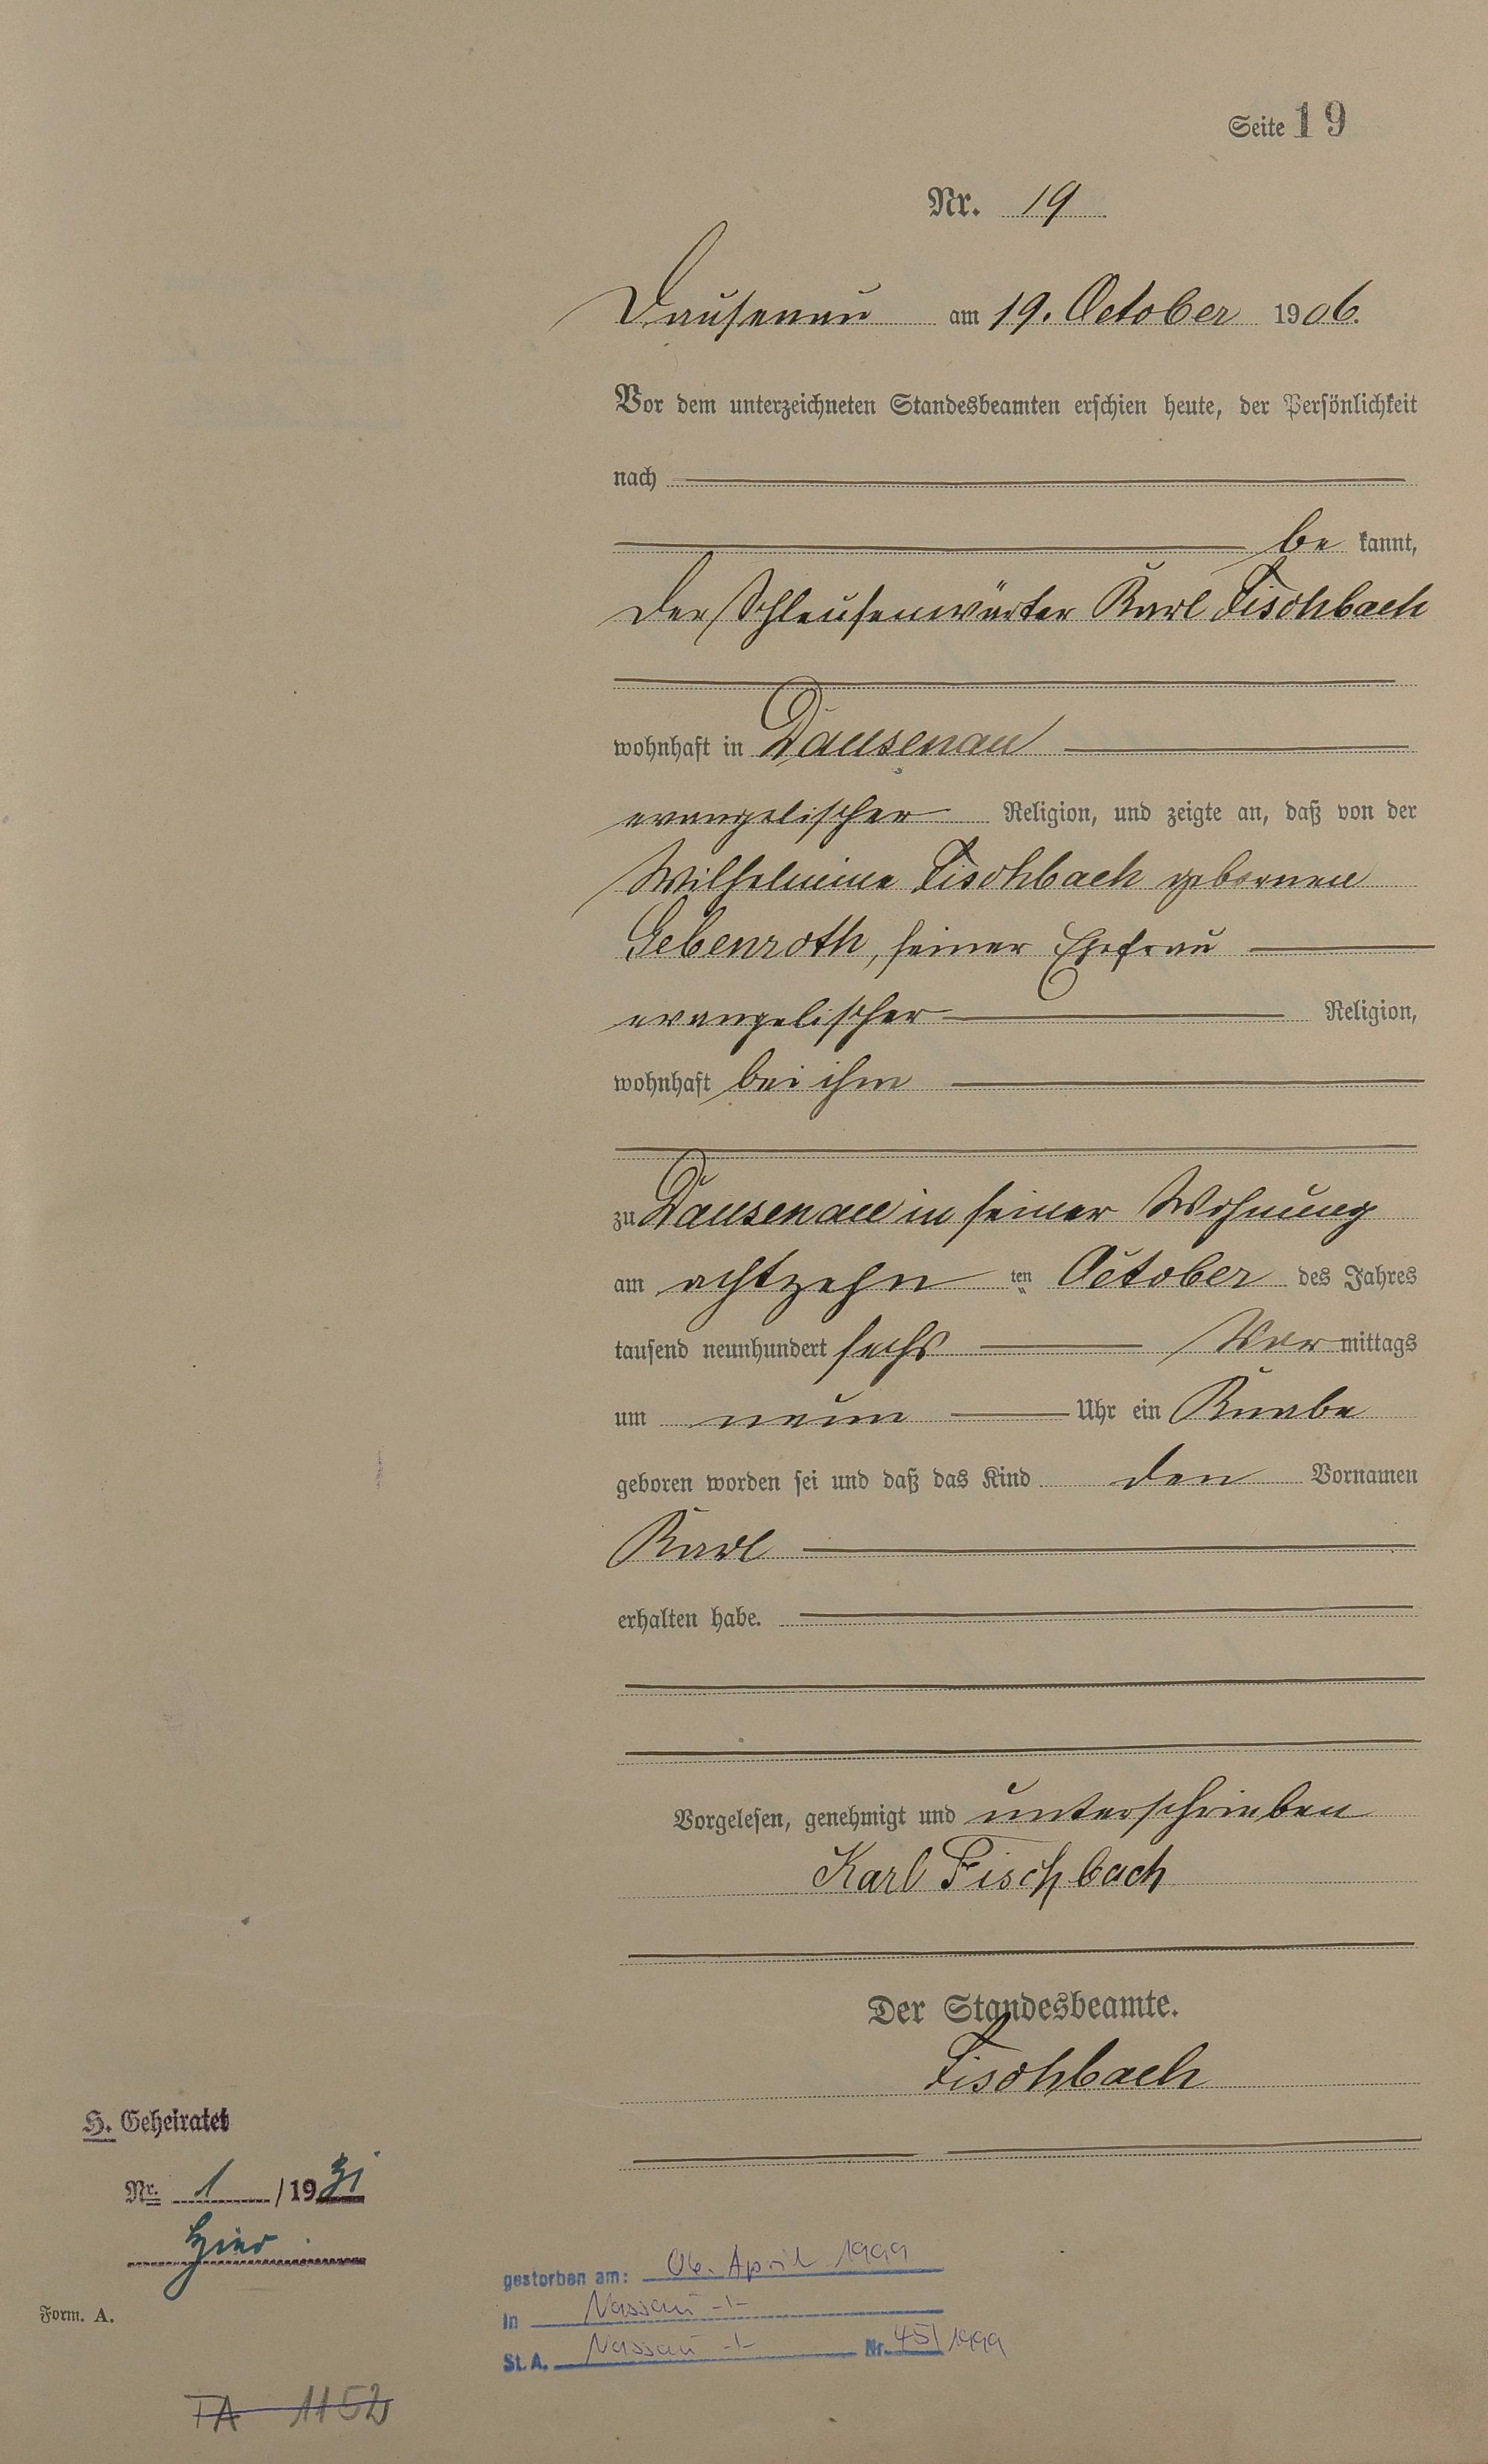 Seite 19
Nr. 19
Dausenau am 19. October 1906.
Vor dem unterzeichneten Standesbeamten erschien heute, der Persönlichkeit
nach
be kannt,
der Schleusenwärter Karl Fischbach
wohnhaft in Dausenau
evangelischer Religion, und zeigte an, daß von der
Wilhelmine Fischbach gebornen
Gebenroth, seiner Ehefrau
evangelischer Religion,
wohnhaft bei ihm
zu Dausenau in seiner Wohnung
am achtzehn ten October des Jahres
tausend neunhundert sechs Vor mittags
um neun Uhr ein Knabe
geboren worden sei und daß das Kind den Vornamen
Karl
erhalten habe.
Vorgelesen, genehmigt und unterschrieben
Karl Fischbach
Der Standesbeamte.
Fischbach
H. Geheiratet
Nr. 1 /1931
hier
gestorben am: 06. April 1999
in Nassau -/-
St. A. Nassau -/- Nr. 45/1999
Form. A.
TA 1152